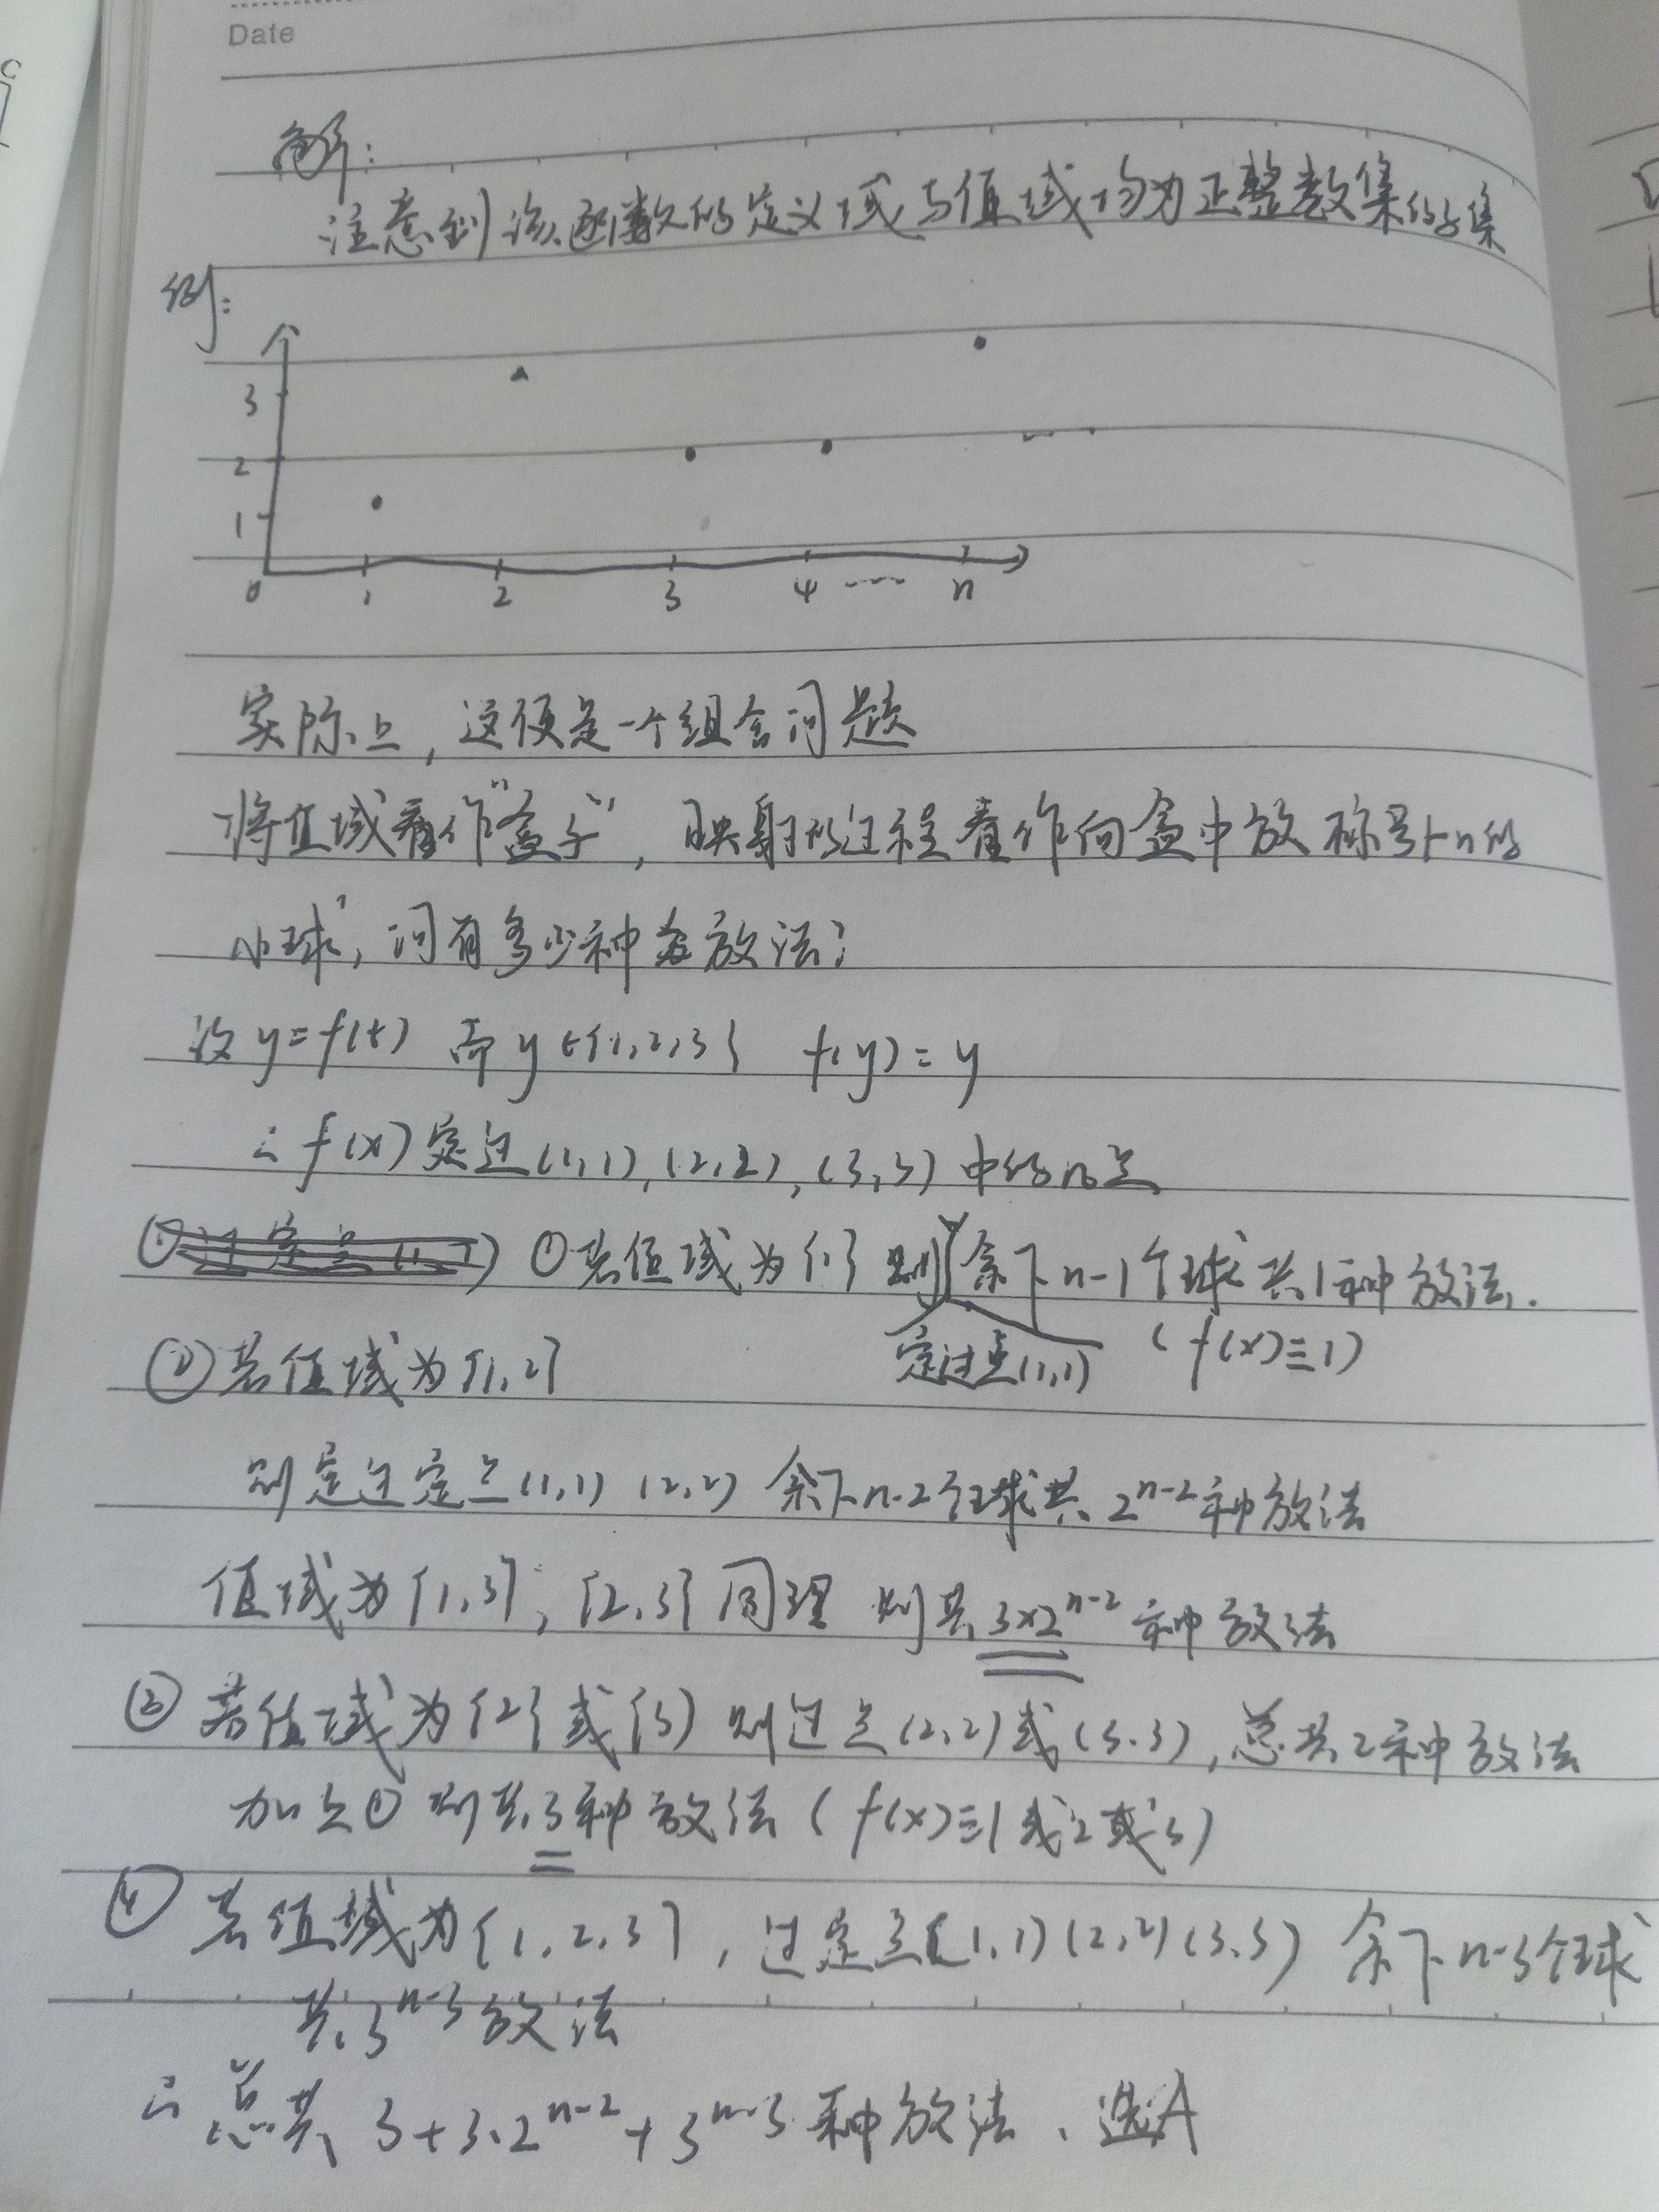 Date
解:
注意到该函数的定义域与值域均为正整数集的子集
例:
3
2
1
0 1 2 3 4 ---- n
实际上,这便是一个组合问题
将值域看作"盒子",映射的过程看作向盒中放标号1-n的
小球,问有多少种放法?
设y=f(t) 而y∈{1,2,3} f(y)=y
∴f(x)定过(1,1),(2,2),(3,3)中的几点
①若值域为{1} 则余下n-1个球共1种放法.
定过点(1,1) (f(x)≡1)
②若值域为{1,2}
则定过定点(1,1) (2,2) 余下n-2个球共2^{n-2}种放法
值域为{1,3},{2,3}同理 则共3×2^{n-2}种放法
③若值域为{2}或{3} 则过点(2,2)或(3,3),总共2种放法
加上① 则共3种放法(f(x)≡1或2或3)
④若值域为{1,2,3},过定点(1,1)(2,2)(3,3) 余下n-3个球
共3^{n-3}放法
∴总共 3+3·2^{n-2}+3^{n-3}种放法、选A